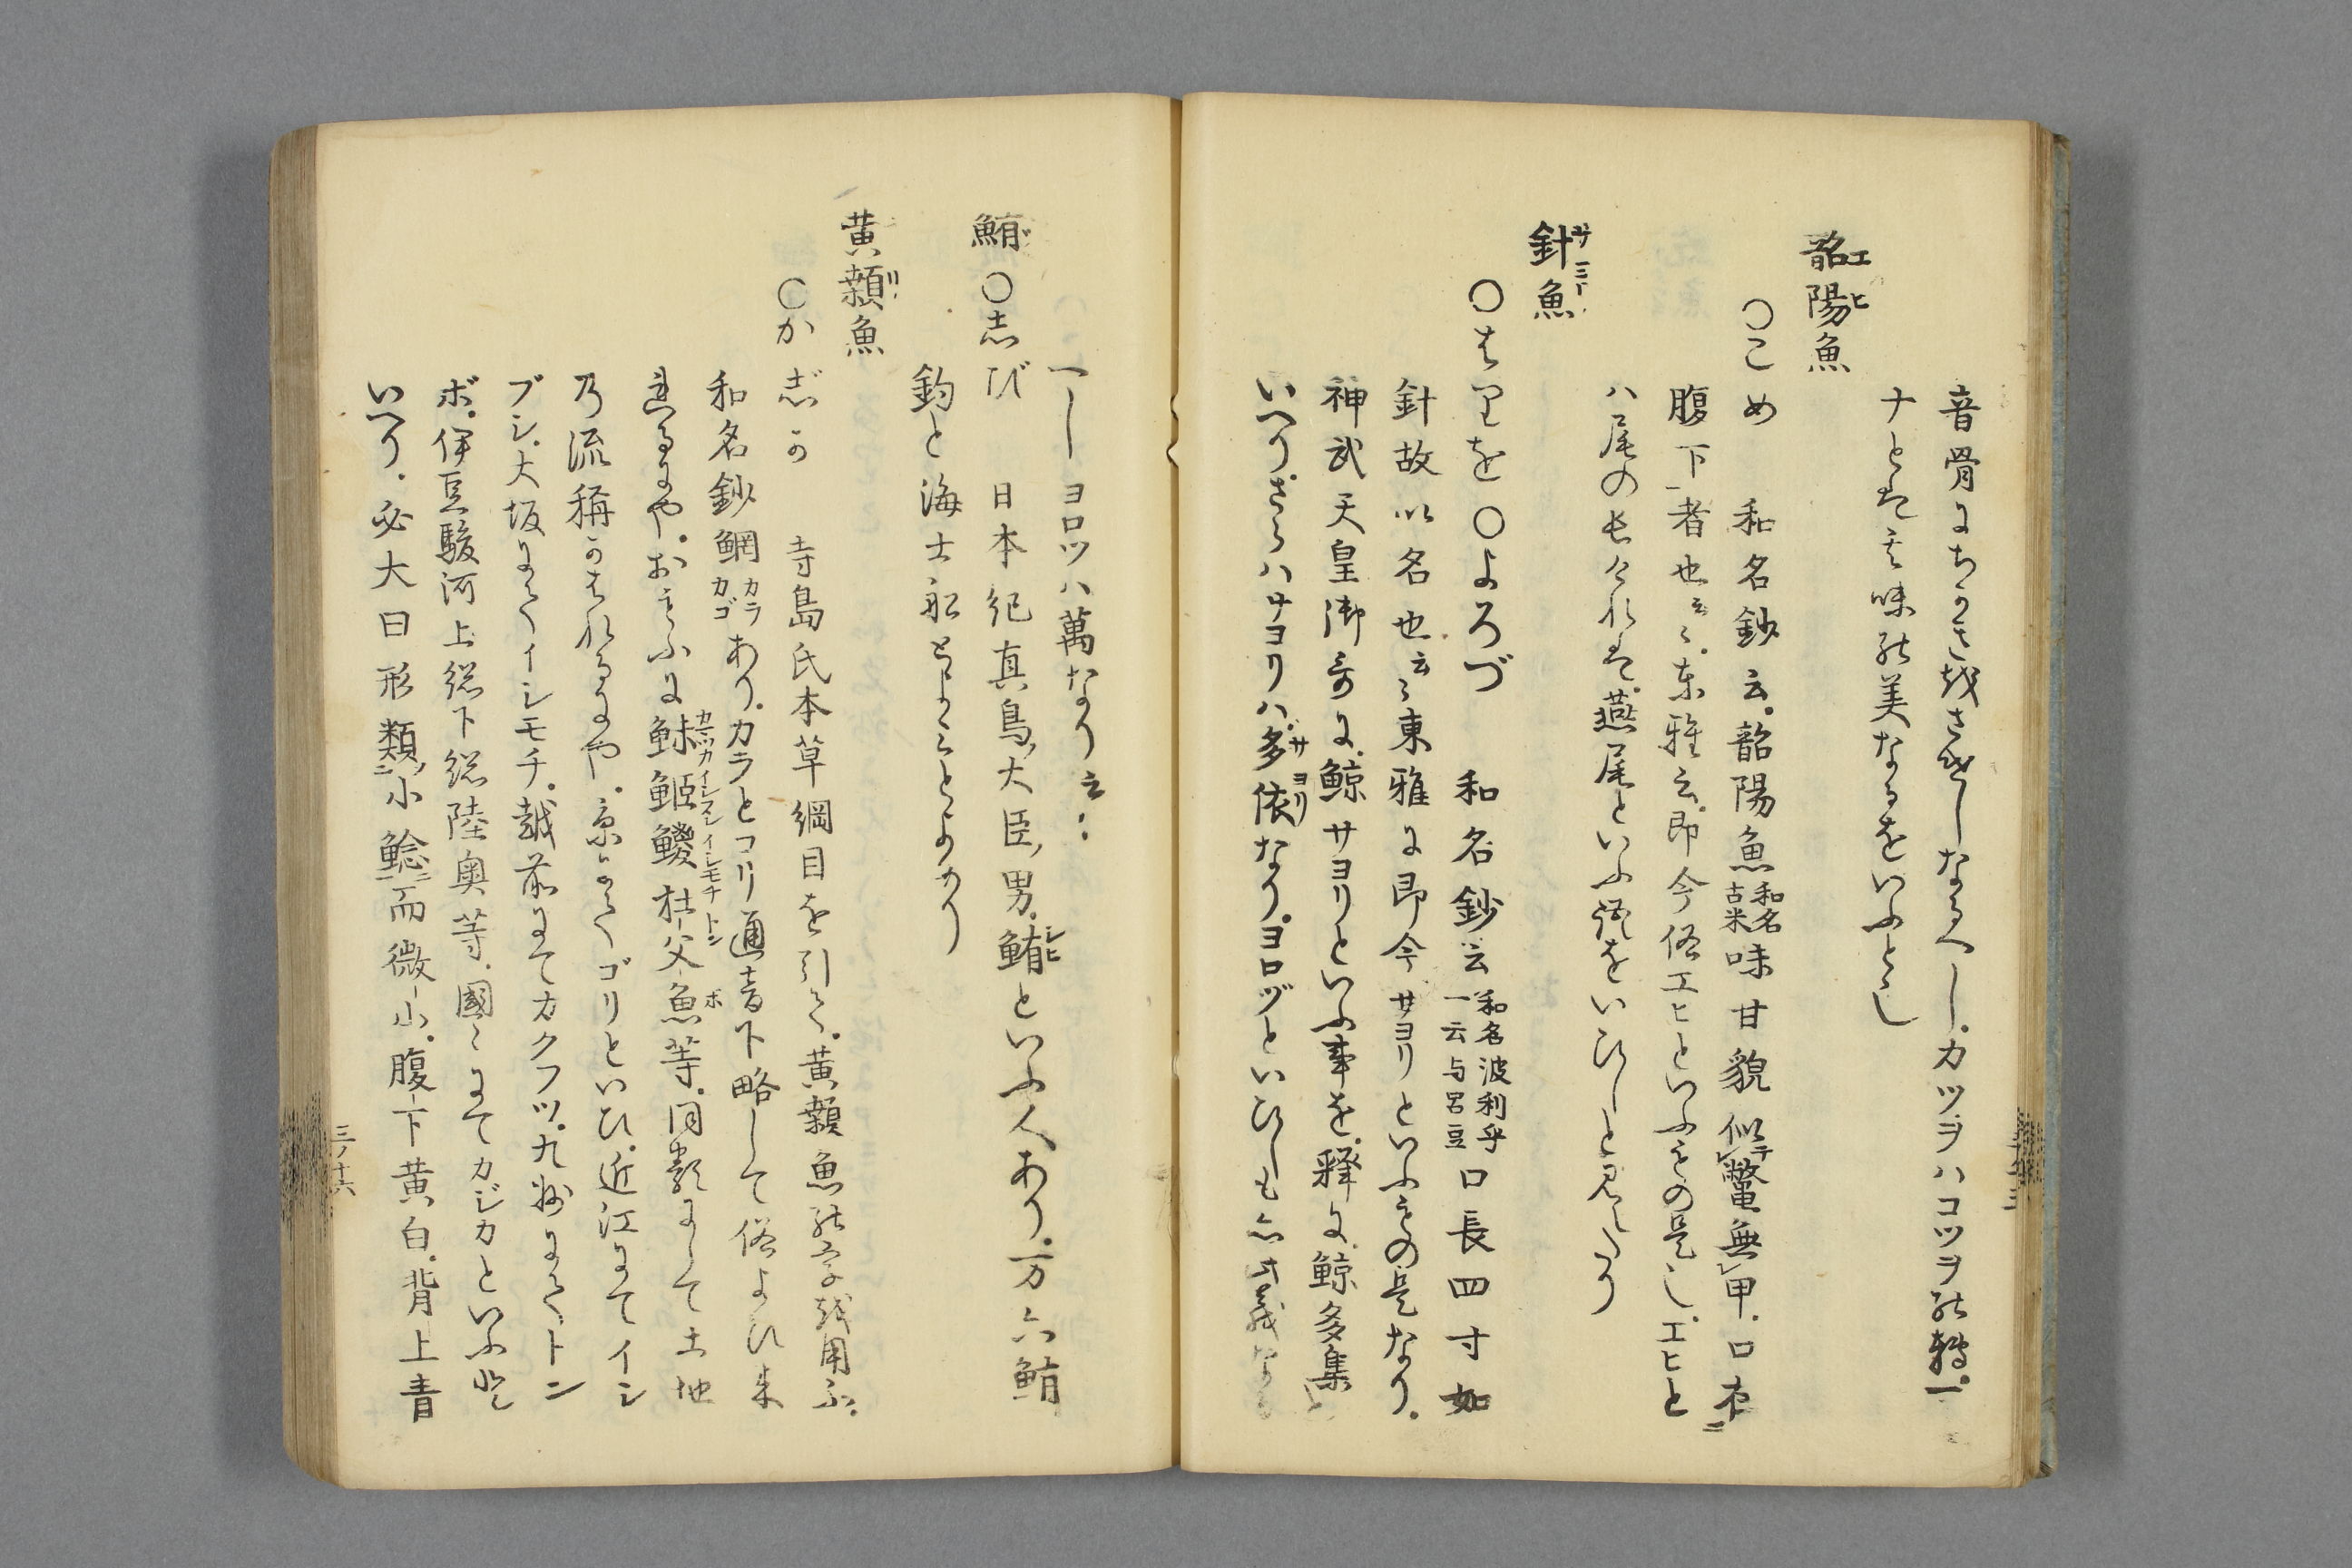 音骨にちかき故さもしなるへし。カツヲハコツヲの轉。一
ナとは其味の美なるをいふとそ
韶陽魚 エヒ
○こめ 和名鈔云。韶陽魚 和名古米 味甘貌似鼈無甲。口在
腹下者也云々。東雅云。即今俗エヒといふもの是也。エヒと
ハ尾の長けれは。燕尾といふ説をいひしと見えたり
針魚 サヨリ
○はりを○よろづ 和名鈔云 和名波利乎 一云与呂豆 口長四寸如
針故以名也云々東雅に即今サヨリといふもの是なり。
神武天皇御哥に。鯨サヨリといふ事を。釋に。鯨多集と
いへり。さらハサヨリハ。多依 サヨリ なり。ヨロヅといひしも亦此義なる
へし ヨロツハ萬なり云々
鮪 ○志び 日本紀真鳥ノ大臣ノ男。鮪 シヒ といふ人あり。万六鮪
釣と海士船ともよめり
黄顙魚
○かじか 寺島氏本草綱目を引て。黄顙魚の字を用ふ。
和名鈔䱍 カラカゴ あり。カラとコリ通音下略して俗よひ来
れるにや。おもふに 䱋䱌鯼杜父魚等。同類にして土地
乃流稱かはれるにや。京にてゴリといひ。近江にてイシ
ブシ。大坂にてイシモチ。越前にてカクフツ。九州にてトン
ボ。伊豆駿河上総下総陸奥等。國々にてカジカといふと
いへり。必大曰形類小鯰而微小。腹下黄白。背上青
三ノ十六